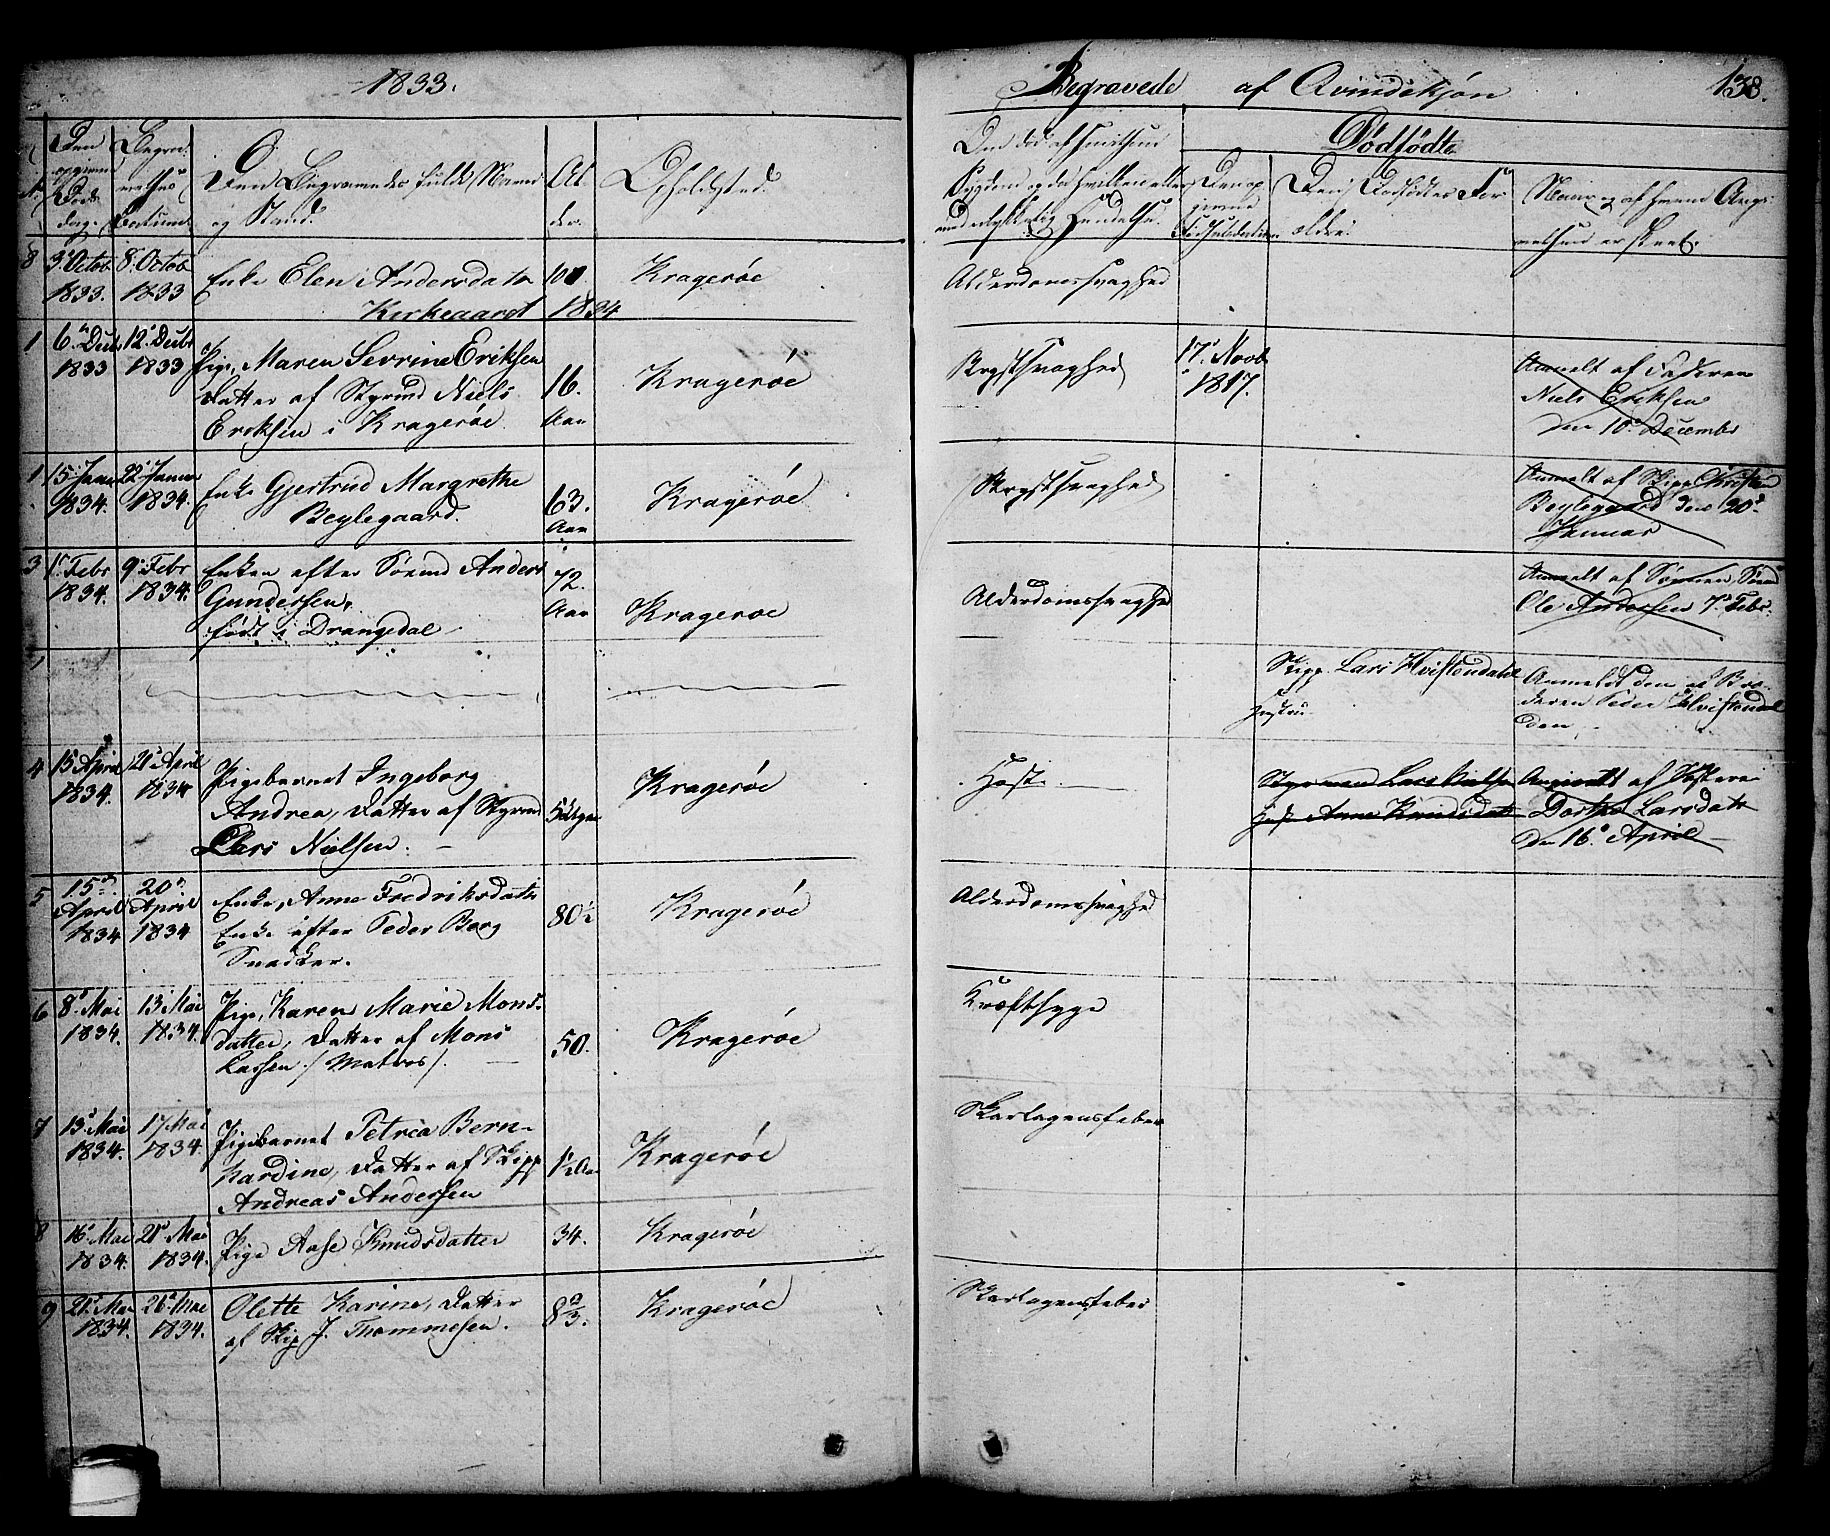 1833.
Begravede af Qvindekjøn
138.
Den opgivne Døds dag.
Begravelses Datum
Den Begravedes fulde Navn
og Stand.
Alder.
Opholdsted.
Dødfødte
8 3 Octob 1833. 8 Octob 1833
Enke Elen Andersdatr
Kragerøe
Alderdomssvaghed
Kirkeaaret 1834
1 6 Decbr 1833 12 Decbr 1833
Pige, Maren Sevrine Eriksen
Datter af Styrmd Niels
Eriksen i Kragerøe.
16. Aar
Kragerøe
Brystsvaghed
17 Novb 1817.
Anmelt af Faderen
Niels Eriksen
den 10 December
15 Januar 1834. 22 Januar 1834.
Enke Gjertrud Margrethe
Beylegaard.
63. Aar
Kragerøe
Brystsvaghed
Anmelt af Skipp Christen
Beylegaard den 20
Januar
3 1 Febr 1834. 9 Febr 1834.
Enken efter Sømd Anders
Gundersen,
født i Drangedal
72. Aar
Kragerøe
Alderdomssvaghed
Anmelt af Sønnen, Sømd
Ole Andersen 7 Febr.
Skipp. Lars Hvistendahl
Anmeldt den af Broderen
Peder Hvistendal
den
4 15 April 1834. 21 April 1834
Pigebarnet Ingeborg
Andrea, Datter af Styrmd
Lars Nielsen.
Kragerøe
Hoste
Styrmand Lars Nielsen
Anne Knudsdatr
Angivelt af Søsteren
Dorthe Larsdatr
Den 16 April
5 15 April 1834 20 April 1834
Enke, Anne Fredriksdattr
Enke efter Peder Borg
Snedker.
80½
Kragerøe
Alderdomssvaghed
6 8 Mai 1834. 13 Mai 1834.
Pige, Karen Marie Mons
datter, Datter af Mons
Lassen / Matros /.
50.
Kragerøe
Kræftsyge
7 13 Mai 1834. 17 Mai 1834.
Pigebarnet Petrea Bern-
hardine, Datter af Skipp
Andreas Andersen
Kragerøe
Skarlagensfeber
8 16 Mai 1834. 21 Mai 1834.
Pige Aase Knudsdatter
34.
Kragerøe
9 21 Mai 1834. 26 Mai 1834.
Olette Karine, Datter
af Skip J. Thommesen.
Kragerøe
Skarlagensfeber